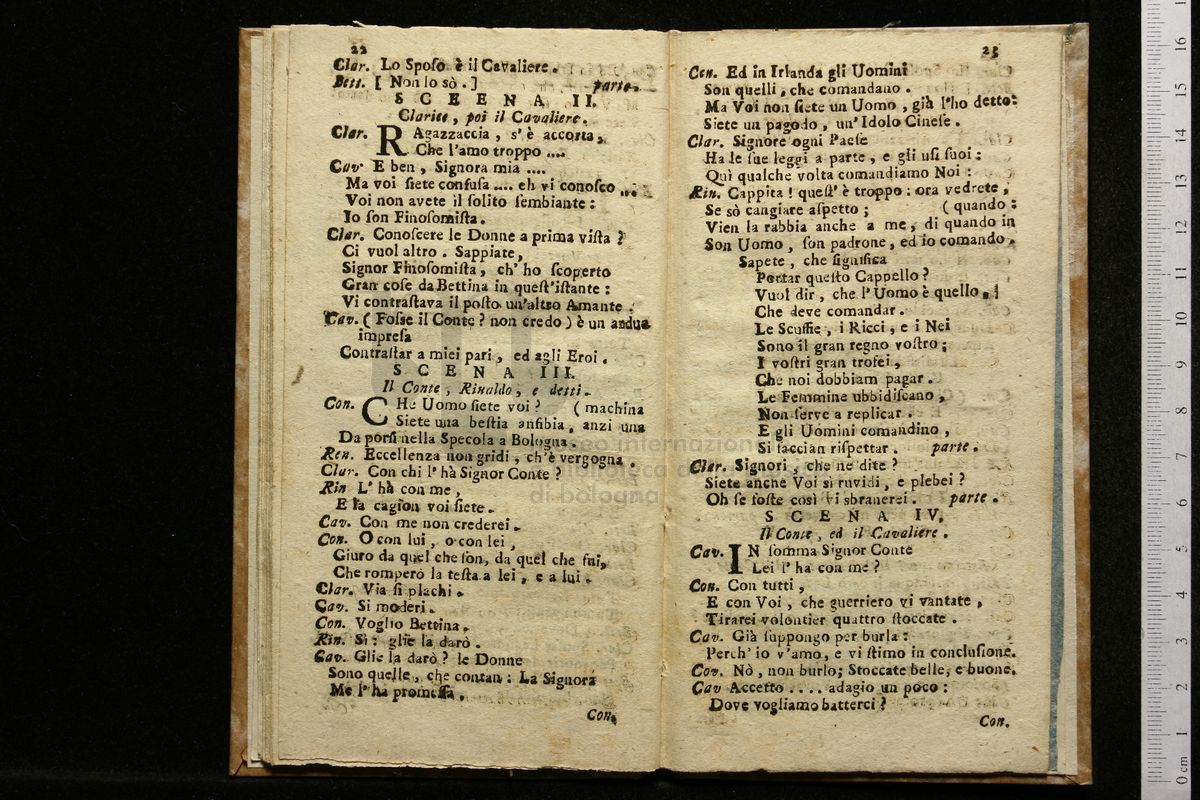 22
Clar. Lo Spoſo è il Cavaliere.
Bett. [ Non lo sò. ] parte.
S C E E N A II.
Clarice, poi il Cavaliere.
Clar. RAgazzaccia, s'è accorta,
Che l'amo troppo ....
Cav E ben, Signora mia ....
Ma voi ſiete confuſa .... eh vi conoſco ....
Voi non avete il ſolito ſembiante :
Io ſon Finoſomiſta.
Clar. Conoſcere le Donne a prima viſta ?
Ci vuol altro. Sappiate,
Signor Finoſomiſta, ch' ho ſcoperto
Gran coſe da Bettina in queſt'iſtante :
Vi contraſtava il poſto un'altro Amante.
Cav. ( Foſſe il Conte ? non credo ) è un ardua
impreſa
Contraſtar a miei pari, ed agli Eroi.
S C E N A III.
Il Conte, Rinaldo, e detti.
Con. CHe Uomo ſiete voi ? ( machina
Siete una beſtia anfibia, anzi una
Da porſi nella Specola a Bologna.
Ren. Eccellenza non gridi, ch'è vergogna.
Clar. Con chi l' hà Signor Conte ?
Rin L' hà con me,
E la cagion voi ſiete.
Cav. Con me non crederei.
Con. O con lui, o con lei,
Giuro da quel che ſon, da quel che fui,
Che romperò la teſta a lei, e a lui.
Clar. Via ſi plachi.
Cav. Si moderi.
Con. Voglio Bettina.
Rin. Sì : glie la darò.
Cav. Glie la darò ? le Donne
Sono quelle, che contan : La Signora
Me l' ha promeſſa.
Con.
23
Con. Ed in Irlanda gli Uomini
Son quelli, che comandano.
Ma Voi non ſiete un Uomo, già l'ho detto:
Siete un pagodo, un' Idolo Cineſe.
Clar. Signore ogni Paeſe
Ha le ſue leggi a parte, e gli uſi ſuoi :
Quì qualche volta comandiamo Noi :
Rin. Cappita ! queſt' è troppo : ora vedrete,
Se sò cangiare aſpetto ; ( quando :
Vien la rabbia anche a me, di quando in
Son Uomo, ſon padrone, ed io comando.
Sapete, che ſignifica
Portar queſto Cappello ?
Vuol dir, che l' Uomo è quello,
Che deve comandar.
Le Scuffie, i Ricci, e i Nei
Sono il gran regno voſtro ;
I voſtri gran trofei,
Che noi dobbiam pagar.
Le Femmine ubbidiſcano,
Non ſerve a replicar.
E gli Uomini comandino,
Si faccian riſpettar. parte.
Clar. Signori, che ne dite ?
Siete anche Voi sì ruvidi, e plebei ?
Oh ſe foſte così vi sbranerei. parte.
S C E N A IV.
Il Conte, ed il Cavaliere.
Cav. IN ſomma Signor Conte
Lei l' ha con me ?
Con. Con tutti,
E con Voi, che guerriero vi vantate,
Tirarei volontier quattro ſtoccate.
Cav. Già ſuppongo per burla :
Perch' io v'amo, e vi ſtimo in concluſione.
Con. Nò, non burlo; Stoccate belle, e buone.
Cav Accetto .... adagio un poco :
Dove vogliamo batterci ?
Con.